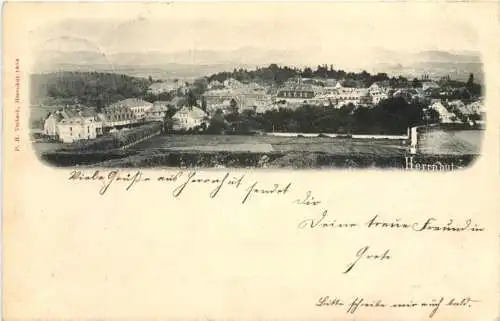 Herrnhut
Viele Grüße aus Herrnhut sendet Dir
Deine treue Freundin
Grete
Bitte schreibe mir auch bald.